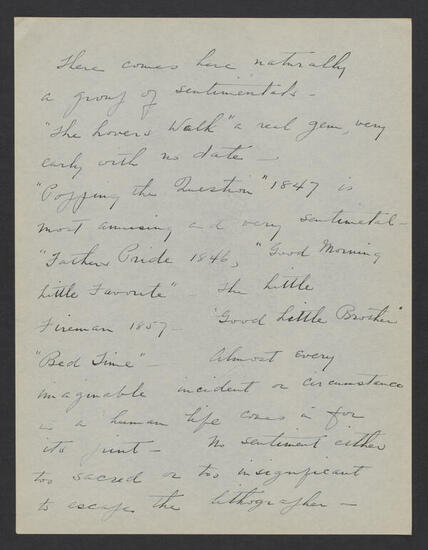 There comes here naturally
a group of sentimentals -
"The Lovers Walk" a real gem, very
early with no date -
"Popping the Question" 1847 is
most amusing and very sentimetal -
"Fathers Pride 1846, "Good Morning
Little Favorite" - The Little
Fireman 1857 - "Good Little Brother"
"Bed Time" - Almost every
imaginable incident or circumstance
in a human life comes in for
its print - No sentiment either
too sacred or too insignificant
to escape the lithographer -